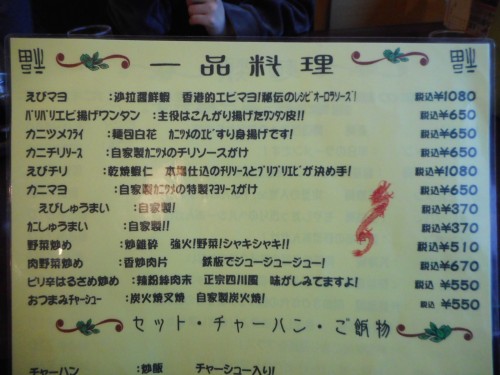 一品料理
えびマヨ :沙拉醤鮮蝦 香港的エビマヨ!秘伝のレシピオーロラソース! 税込¥1080
パリパリエビ揚げワンタン :主役はこんがり揚げたワンタン皮!! 税込¥650
カニツメフライ :麺包白花 カニツメのエビすり身揚げです! 税込¥650
カニチリソース :自家製カニツメのチリソースがけ 税込¥650
えびチリ :乾焼蝦仁 本場仕込のチリソースとプリプリエビが決め手! 税込¥1080
カニマヨ :自家製カニツメの特製マヨソースがけ 税込¥650
えびしゅうまい :自家製! 税込¥370
かにしゅうまい :自家製!! 税込¥370
野菜炒め :炒雑砕 強火!野菜!シャキシャキ!! 税込¥510
肉野菜炒め :香炒肉片 鉄板でジュージュージュー! 税込¥670
ピリ辛はるさめ炒め :辣粉絲肉末 正宗四川風 味がしみてますよ! 税込¥550
おつまみチャーシュー :炭火焼叉焼 自家製炭火焼! 税込¥550
セット・チャーハン・ご飯物
チャーハン :炒飯 チャーシュー入り!